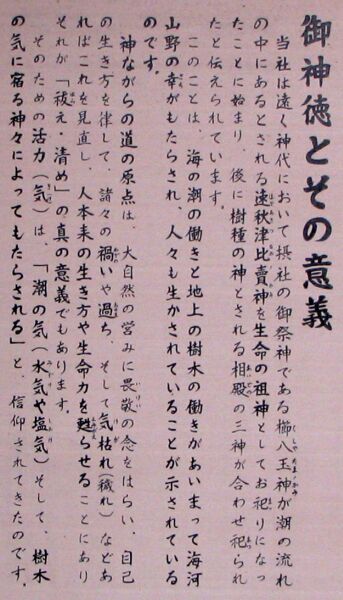 御神徳とその意義
当社は遠く神代において摂社の御祭神である櫛八玉神が潮の流れ
の中にあるとされる速秋津比賣神を生命の祖神としてお祀りになっ
たことに始まり、後に樹種の神とされる相殿の三神が合わせ祀られ
たと伝えられています。
このことは、海の潮の働きと地上の樹木の働きがあいまって海河
山野の幸がもたらされ、人々も生かされていることが示されている
のです。
神ながらの道の原点は、大自然の営みに畏敬の念をはらい、自己
の生き方を律して、諸々の禍いや過ち、そして気枯れ(穢れ)などあ
ればこれを見直し、人本来の生き方や生命力を甦らせることにあり
それが「祓え・清め」の真の意義でもあります。
そのための活力(気)は、「潮の気(水気や塩気)そして、樹木
の気に宿る神々によってもたらされる」と、信仰されてきたのです。